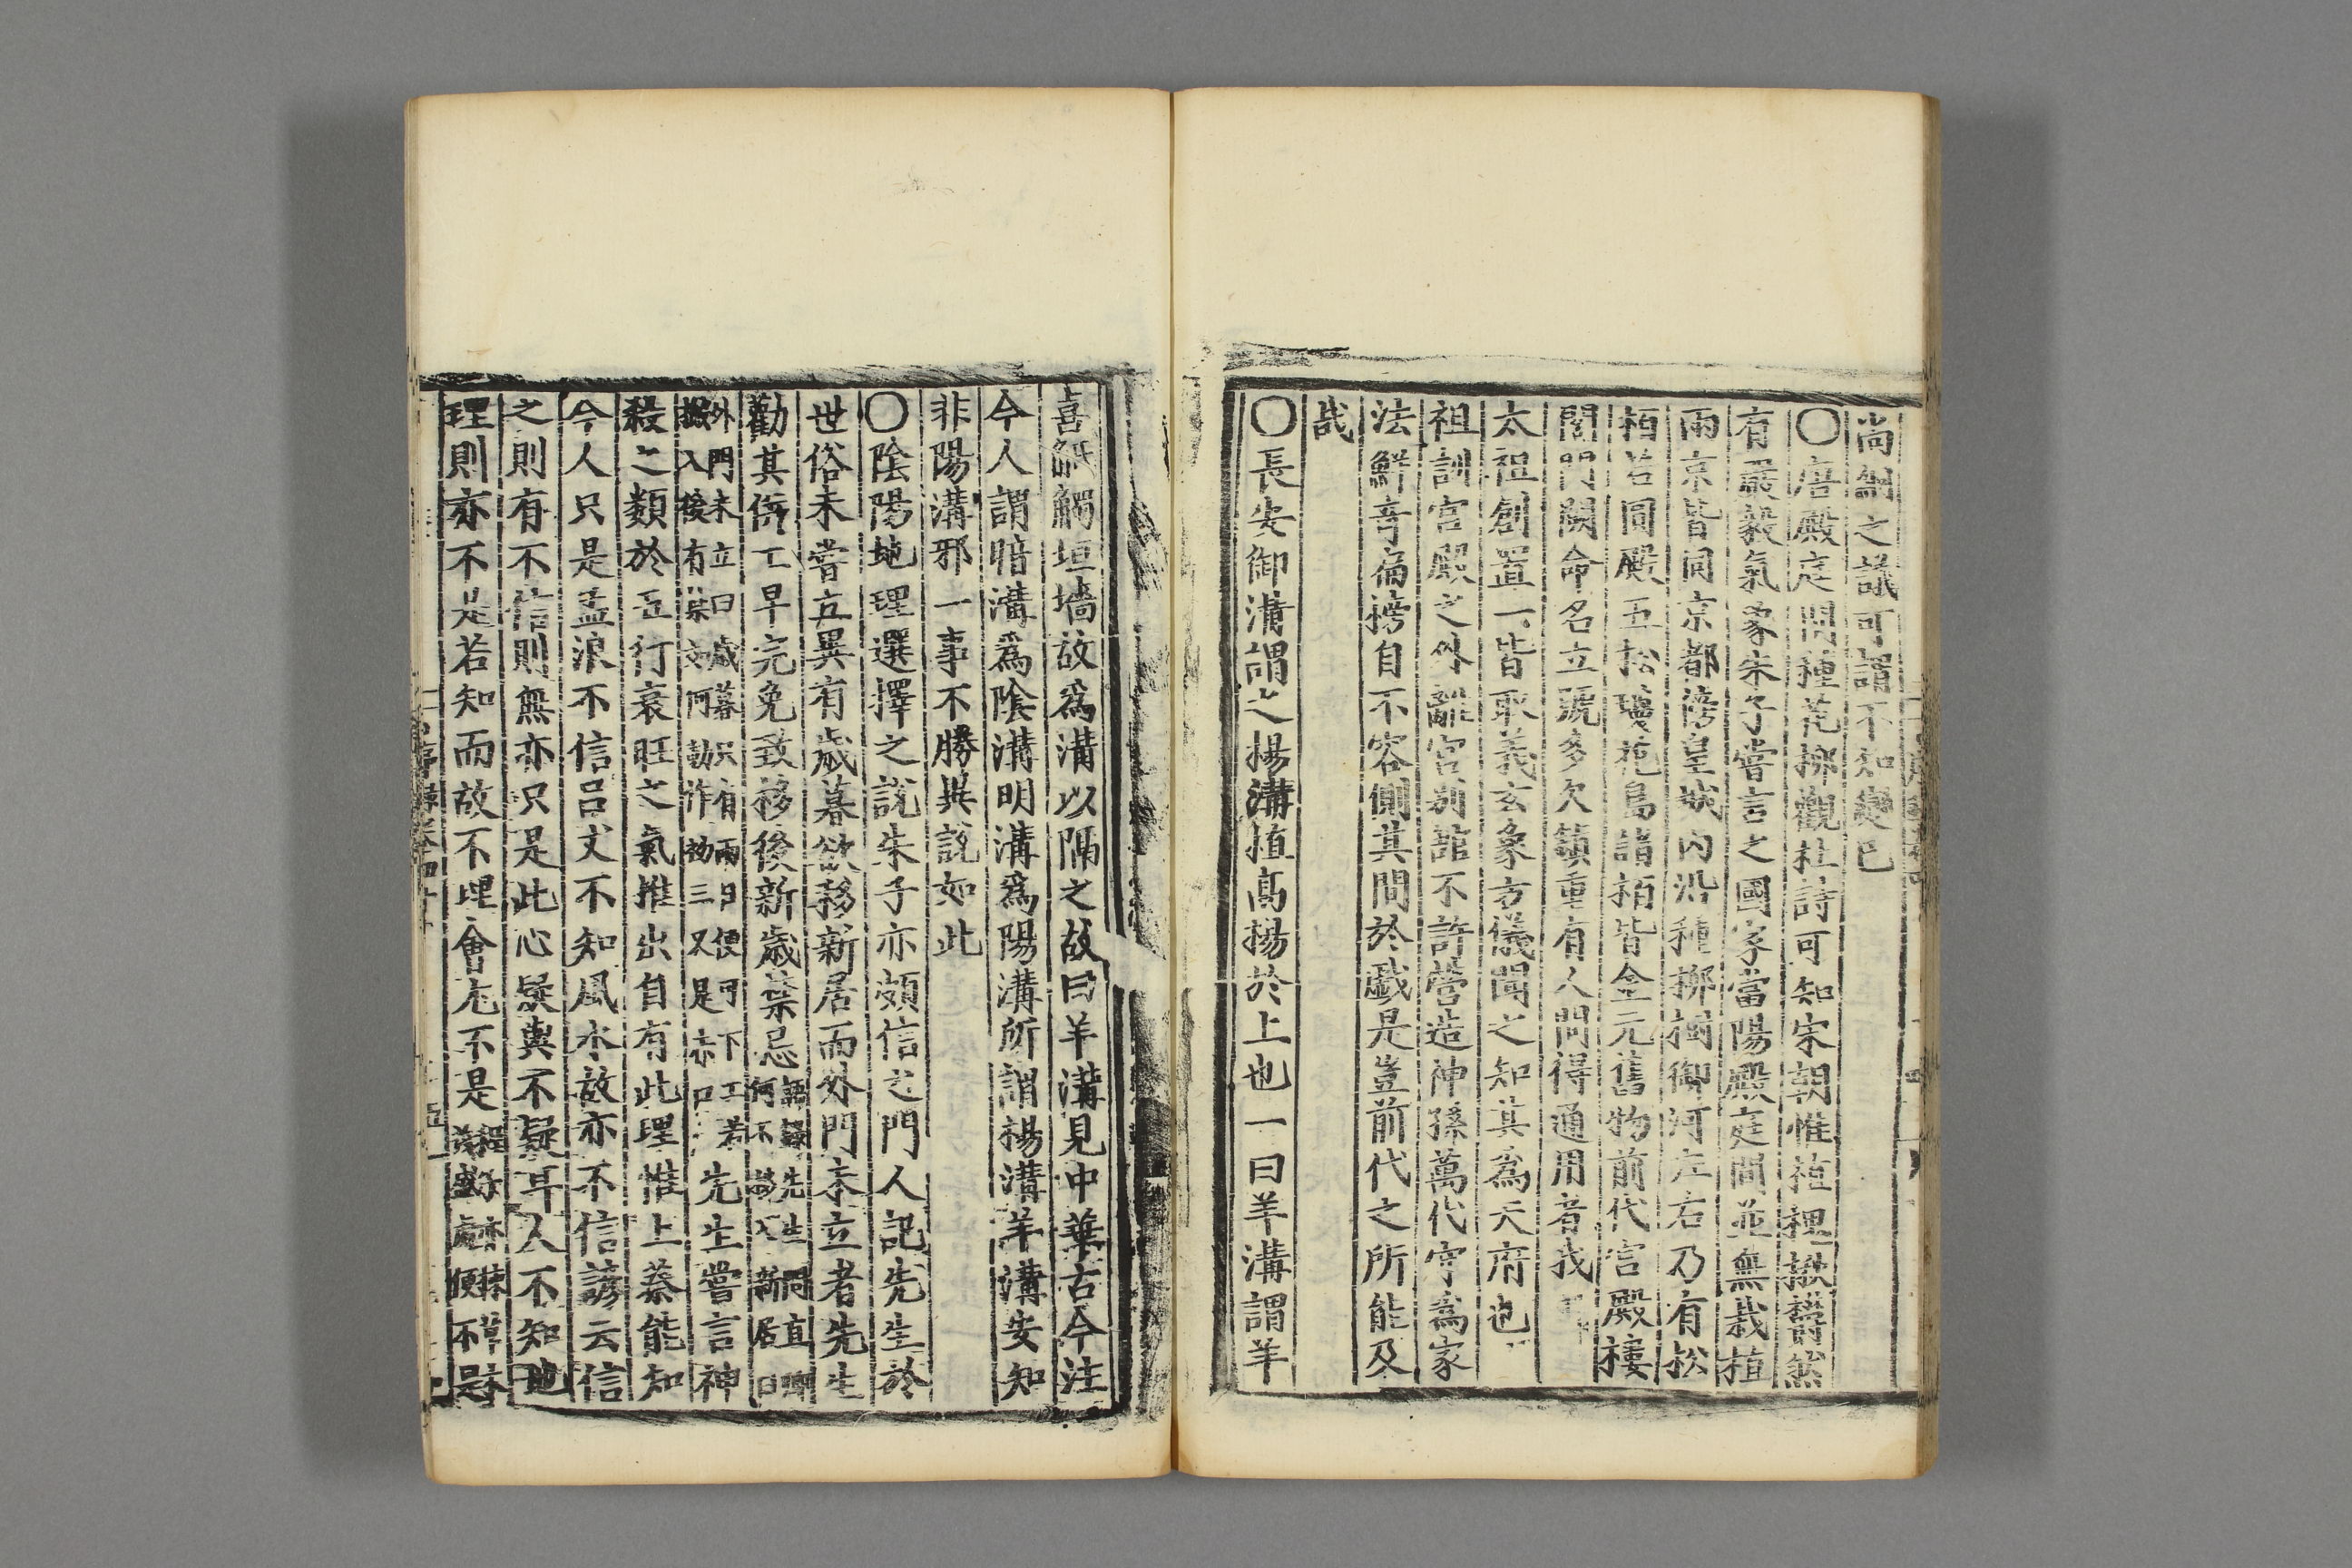 尚綱之議可謂不知變已
〇唐殿庭間種花栁觀杜詩可知宋朝惟植槐楸欝然
有嚴毅氣象朱子嘗言之國家當陽殿庭間並無栽植
兩京皆同京都傍皇城内沿種栁樹御河左右乃有松
栢若圓殿五松瓊苑島諸栢皆金元舊物前代宫殿樓
閣門闕命名立號多欠鎮重有人間得通用者我
太祖創置一皆取義玄象方儀聞之知其為天府也
祖訓宫殿之外離宫别舘不許營造神孫萬代守為家
法鮮竒徧搒自不容側其間於戱是豈前代之所能及
哉
〇長安御溝謂之楊溝植髙楊於上也一曰羊溝謂羊
喜觝觸垣墻故爲溝以隔之故曰羊溝見中華古今注
今人謂暗溝爲陰溝明溝爲陽溝所謂楊溝羊溝安知
非陽溝邪一事不勝異説如此
〇陰陽地理選擇之說朱子亦頗信之門人記先生於
世俗未嘗立異有歳暮欲移新居而外門未立者先生
勸其併工早完免致移後新歳禁忌語録先生問直卿何不移入新居曰
外門未立曰歳暮只有兩日便可下工若搬入後有禁忌如何動作初三又是赤口先生嘗言神
殺之類於五行衰旺之氣推出自有此理惟上蔡能知
今人只是孟浪不信吕丈不知風水故亦不信諺云信
之則有不信則無亦只是此心疑與不疑耳人不知地
理則亦不是若知而故不理會尢不是